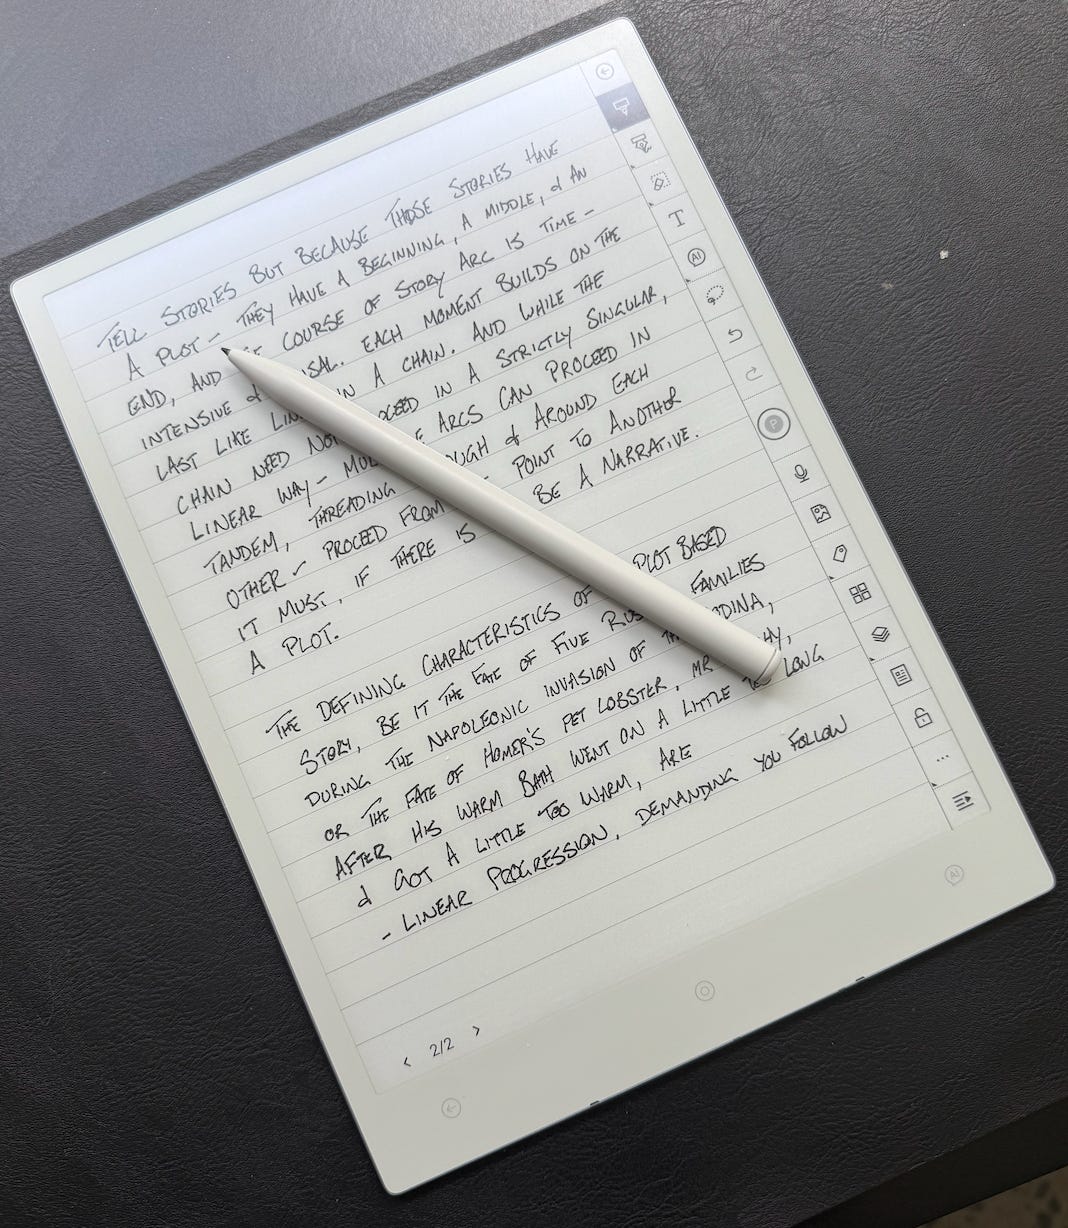 TELL STORIES BUT BECAUSE THOSE STORIES HAVE
A PLOT – THEY HAVE A BEGINNING, A MIDDLE, & AN
END, AND COURSE OF STORY ARC IS TIME –
INTENSIVE & EACH MOMENT BUILDS ON THE
LAST LIKE IN A CHAIN. AND WHILE THE
CHAIN NEED NOT IN A STRICTLY SINGULAR,
LINEAR WAY – ARCS CAN PROCEED IN
TANDEM, THREADING & AROUND EACH
OTHER – PROCEED FROM POINT TO ANOTHER
IT MUST, IF THERE IS BE A NARRATIVE.
A PLOT.
THE DEFINING CHARACTERISTICS OF PLOT BASED
STORY, BE IT THE FATE OF FIVE FAMILIES
DURING THE NAPOLEONIC INVASION OF
OR THE FATE OF HOMER'S PET LOBSTER, MR
AFTER HIS WARM BATH WENT ON A LITTLE LONG
& GOT A LITTLE TOO WARM, ARE
– LINEAR PROGRESSION. DEMANDING YOU FOLLOW
< 2/2 >
T
AI
P
AI